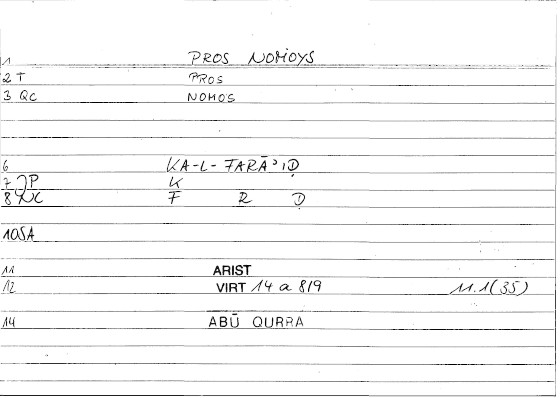 1 PROS NOMOYS
2 T PROS
3 QC NOMOS
6 KA-L-FARĀʾIḌ
7 JP K
8 NC F R Ḍ
10SA
11 ARIST
12 VIRT 14 a 8/9 11.1(35)
14 ABŪ QURRA